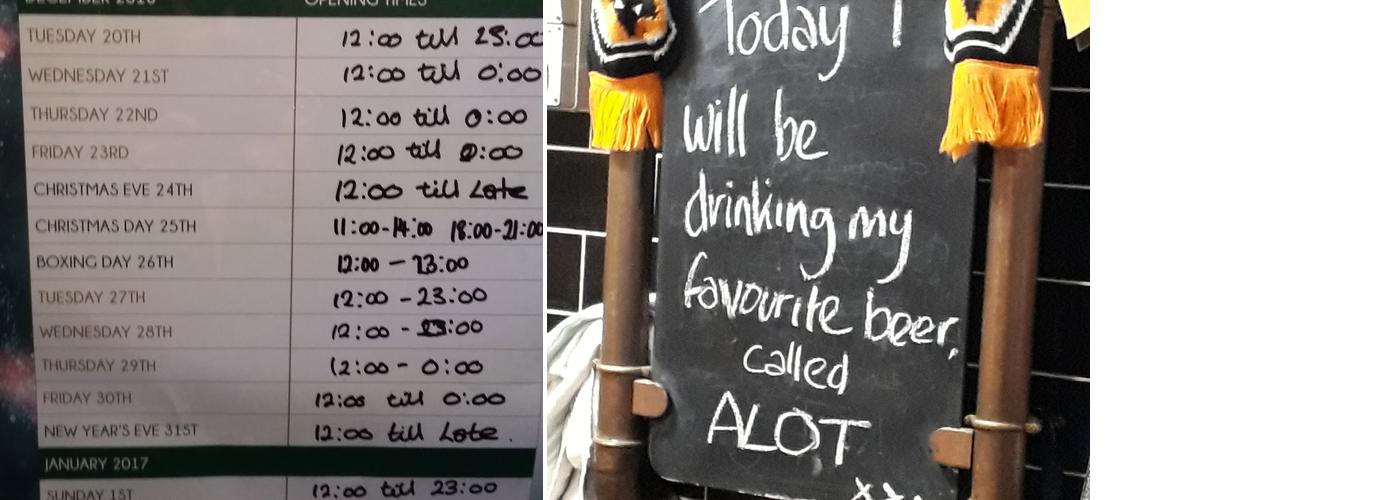 DECEMBER 2016 OPENING TIMES
TUESDAY 20TH 12:00 till 23:00
WEDNESDAY 21ST 12:00 till 0:00
THURSDAY 22ND 12:00 till 0:00
FRIDAY 23RD 12:00 till 0:00
CHRISTMAS EVE 24TH 12:00 till Late
CHRISTMAS DAY 25TH 11:00-14:00 18:00-21:00
BOXING DAY 26TH 12:00 - 23:00
TUESDAY 27TH 12:00 - 23:00
WEDNESDAY 28TH 12:00 - 23:00
THURSDAY 29TH 12:00 - 0:00
FRIDAY 30TH 12:00 till 0:00
NEW YEAR'S EVE 31ST 12:00 till Late.
JANUARY 2017
SUNDAY 1ST 12:00 till 23:00
Today I
will be
drinking my
favourite beer,
called
ALOT